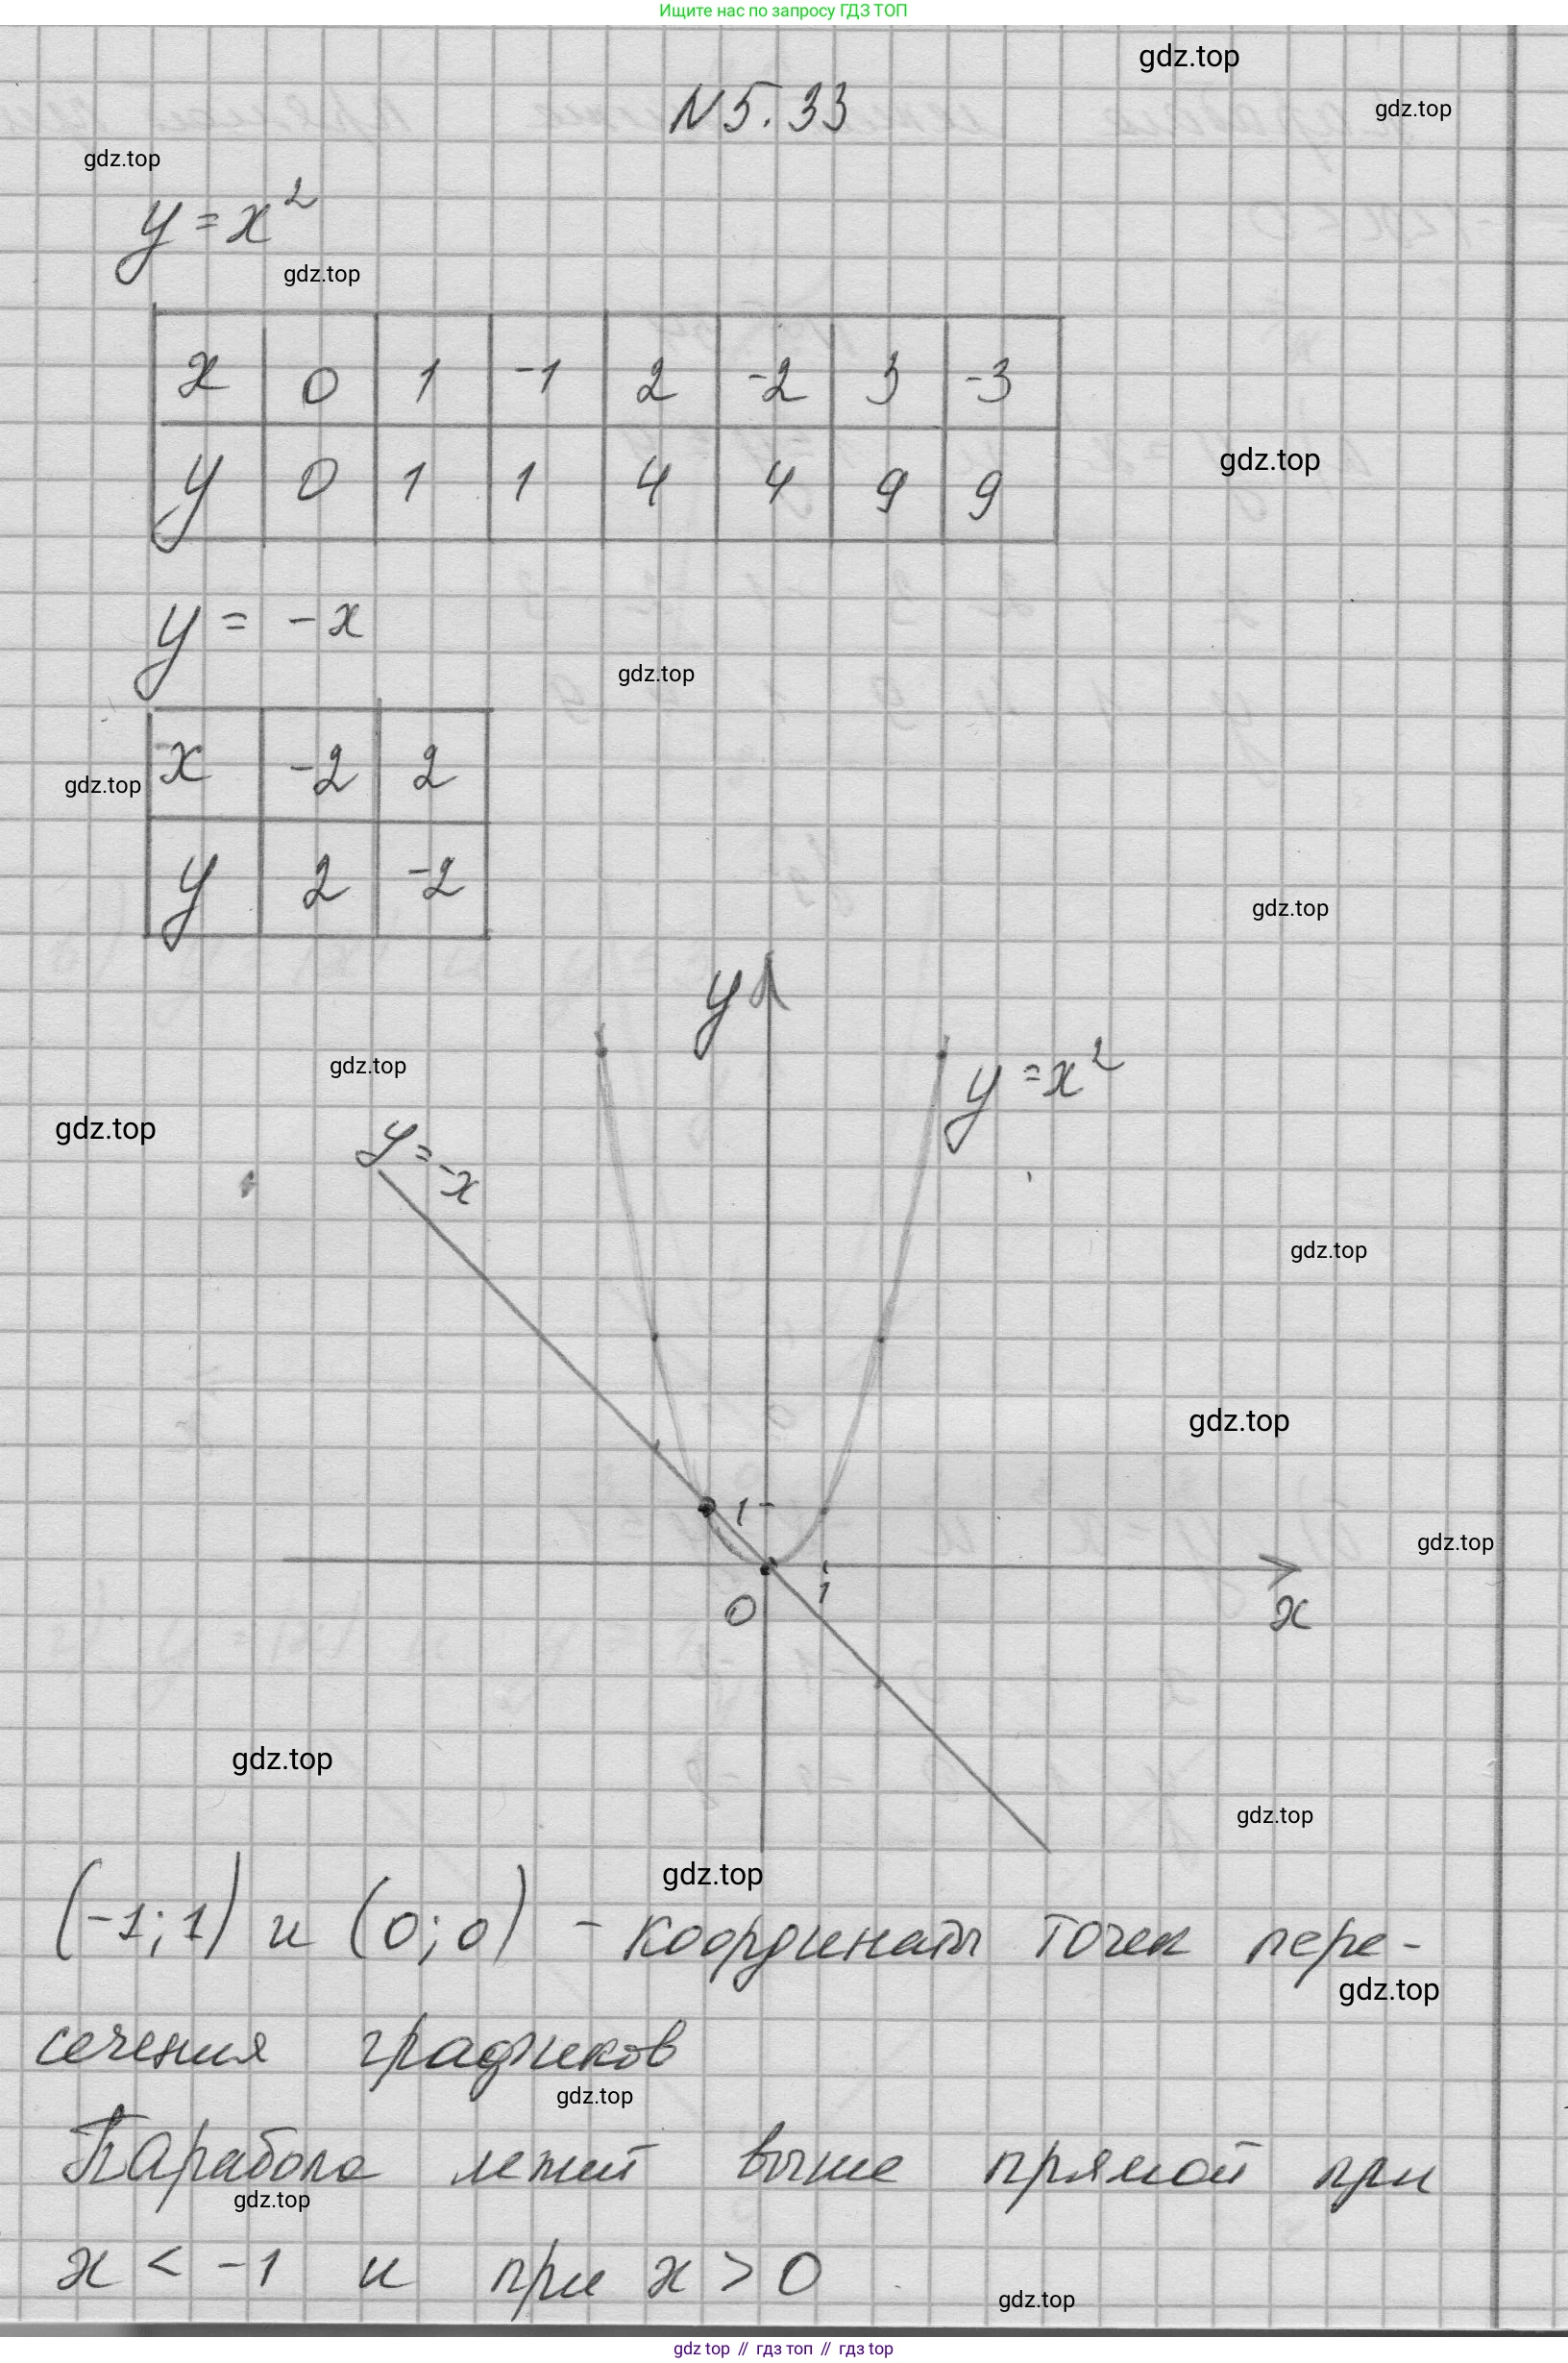 Ищите нас по запросу ГДЗ ТОП
gdz.top
N 5.33
gdz.top
gdz.top
y = x²
gdz.top
x 0 1 -1 2 -2 3 -3
y 0 1 1 4 4 9 9
gdz.top
y = -x
gdz.top
x -2 2
gdz.top
y 2 -2
gdz.top
y
gdz.top
y = x²
gdz.top
y = -x
gdz.top
gdz.top
1
gdz.top
0 1 x
gdz.top
gdz.top
gdz.top
(-1; 1) и (0; 0) - координаты точек пере-
gdz.top
сечения графиков
gdz.top
Парабола лежит выше прямой при
gdz.top
x < -1 и при x > 0
gdz.top
gdz top // гдз топ // гдз top